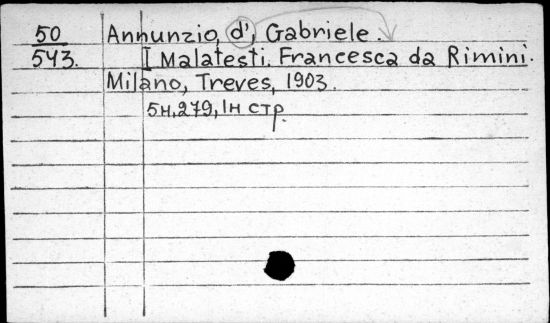 50 Annunzio, d', Gabriele.
543. I Malatesti. Francesca da Rimini.
Milano, Treves, 1903.
5н, 279, 1н стр.